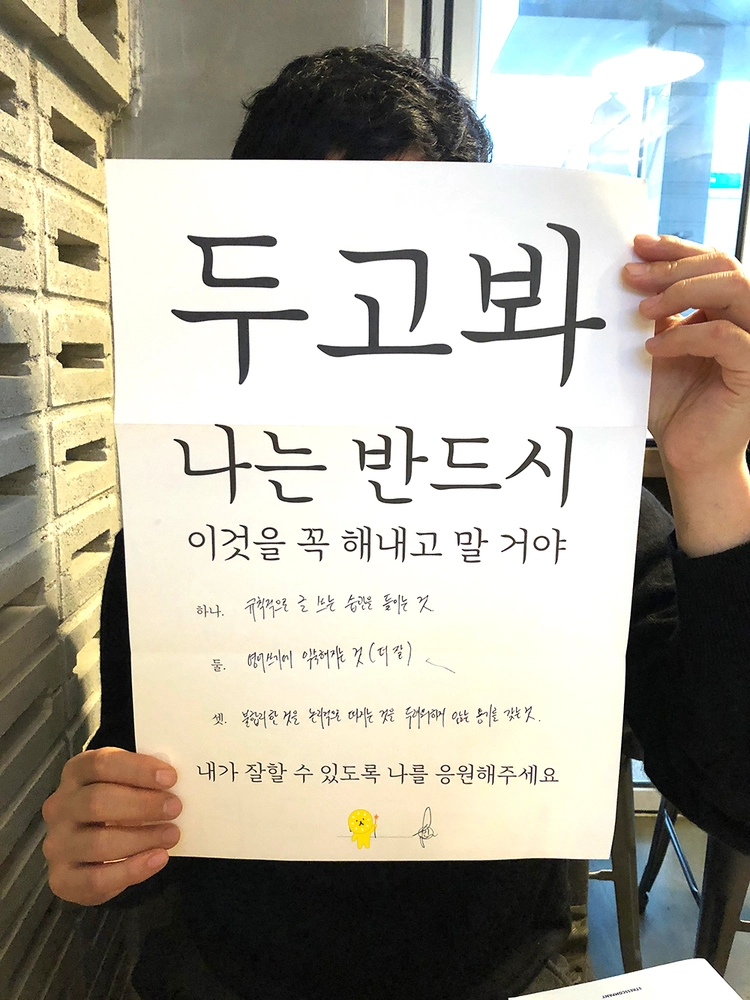 두고봐
나는 반드시
이것을 꼭 해내고 말 거야
하나. 규칙적으로 글 쓰는 습관을 들이는 것
둘. 영어쓰기에 익숙해지는 것 (더 잘)
셋. 불합리한 것을 논리적으로 따지는 것을 두려워하지 않는 용기를 갖는 것.
내가 잘할 수 있도록 나를 응원해주세요